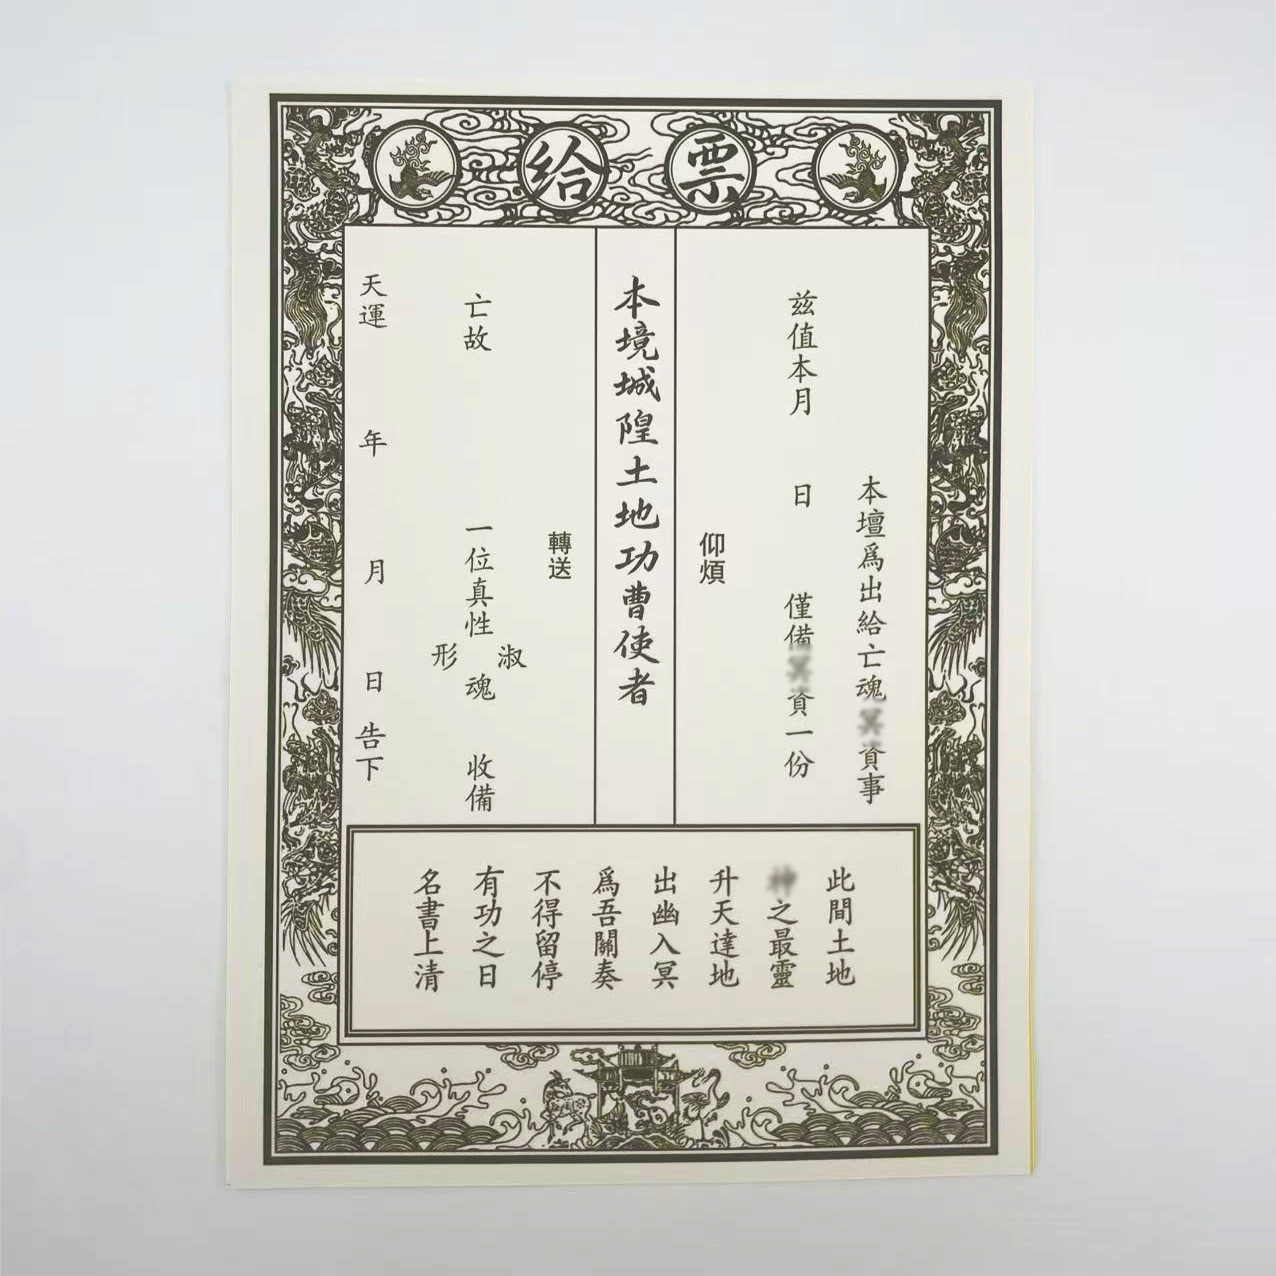 给票
本壇爲出給亡魂冥資事
兹值本月 日 僅備冥資一份
仰煩
本境城隍土地功曹使者
轉送
亡故 一位真性 淑 形 魂 收備
天運 年 月 日 告下
此間土地
神之最靈
升天達地
出幽入冥
爲吾關奏
不得留停
有功之日
名書上清